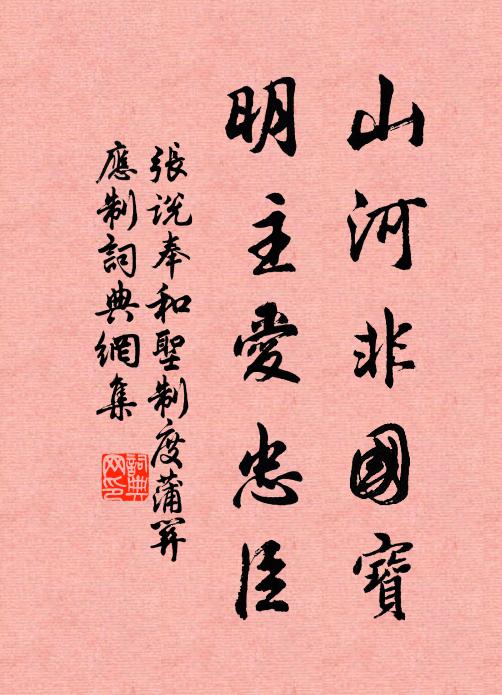 山河非國寶
明主愛忠臣
張說奉和聖制度蒲關
應制詞典網集
詞典網印